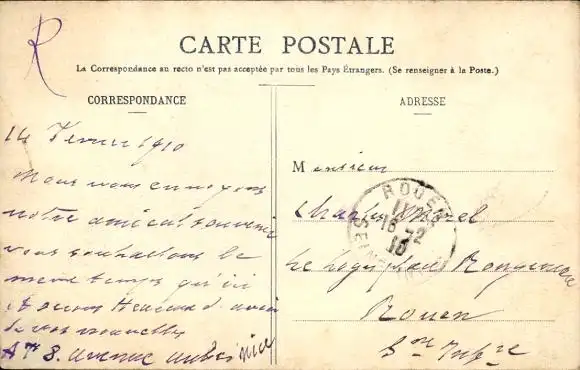 R
CARTE POSTALE
La Correspondance au recto n'est pas acceptée par tous les Pays Étrangers. (Se renseigner à la Poste.)
CORRESPONDANCE
ADRESSE
14 Fevrier 1910
Nous vous envoyons
notre amical souvenir
vous souhaitons le
meme temps qu'ici
heureux d'avoir
de vos nouvelles
8. avenue Nice
Monsieur
Charles
Rouen
Sne Infre
ROUEN
16-2
10
SEINE